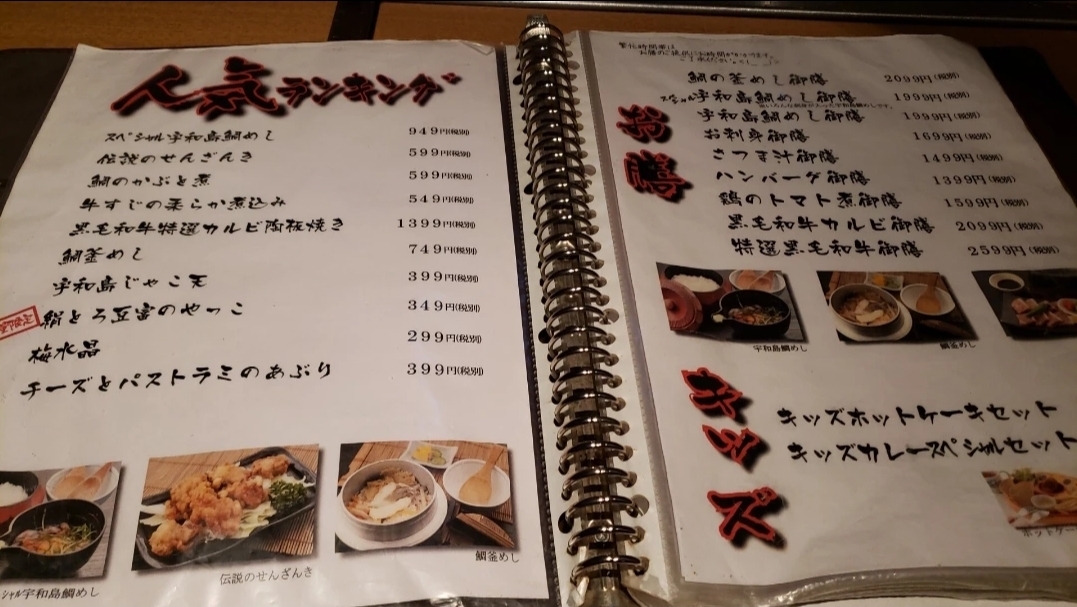 人気ランキング
スペシャル宇和島鯛めし 949円(税別)
伝説のせんざんき 599円(税別)
鯛のかぶと煮 599円(税別)
牛すじの柔らか煮込み 549円(税別)
黒毛和牛特選カルビ陶板焼き 1399円(税別)
鯛釜めし 749円(税別)
宇和島じゃこ天 399円(税別)
絹とろ豆富のやっこ 349円(税別)
梅水晶 299円(税別)
チーズとパストラミのあぶり 399円(税別)
シャル宇和島鯛めし
伝説のせんざんき
鯛釜めし
繁忙時間帯は
お膳のご提供にお時間がかかります。
お膳
鯛の釜めし御膳 2099円(税別)
スペシャル宇和島鯛めし御膳 1999円(税別)
宇和島鯛めし御膳 1599円(税別)
お刺身御膳 1699円(税別)
さつま汁御膳 1499円(税別)
ハンバーグ御膳 1399円(税別)
鶏のトマト煮御膳 1599円(税別)
黒毛和牛カルビ御膳 2099円(税別)
特選黒毛和牛御膳 2599円(税別)
宇和島鯛めし
鯛釜めし
キッズ
キッズホットケーキセット
キッズカレースペシャルセット
ホットケー